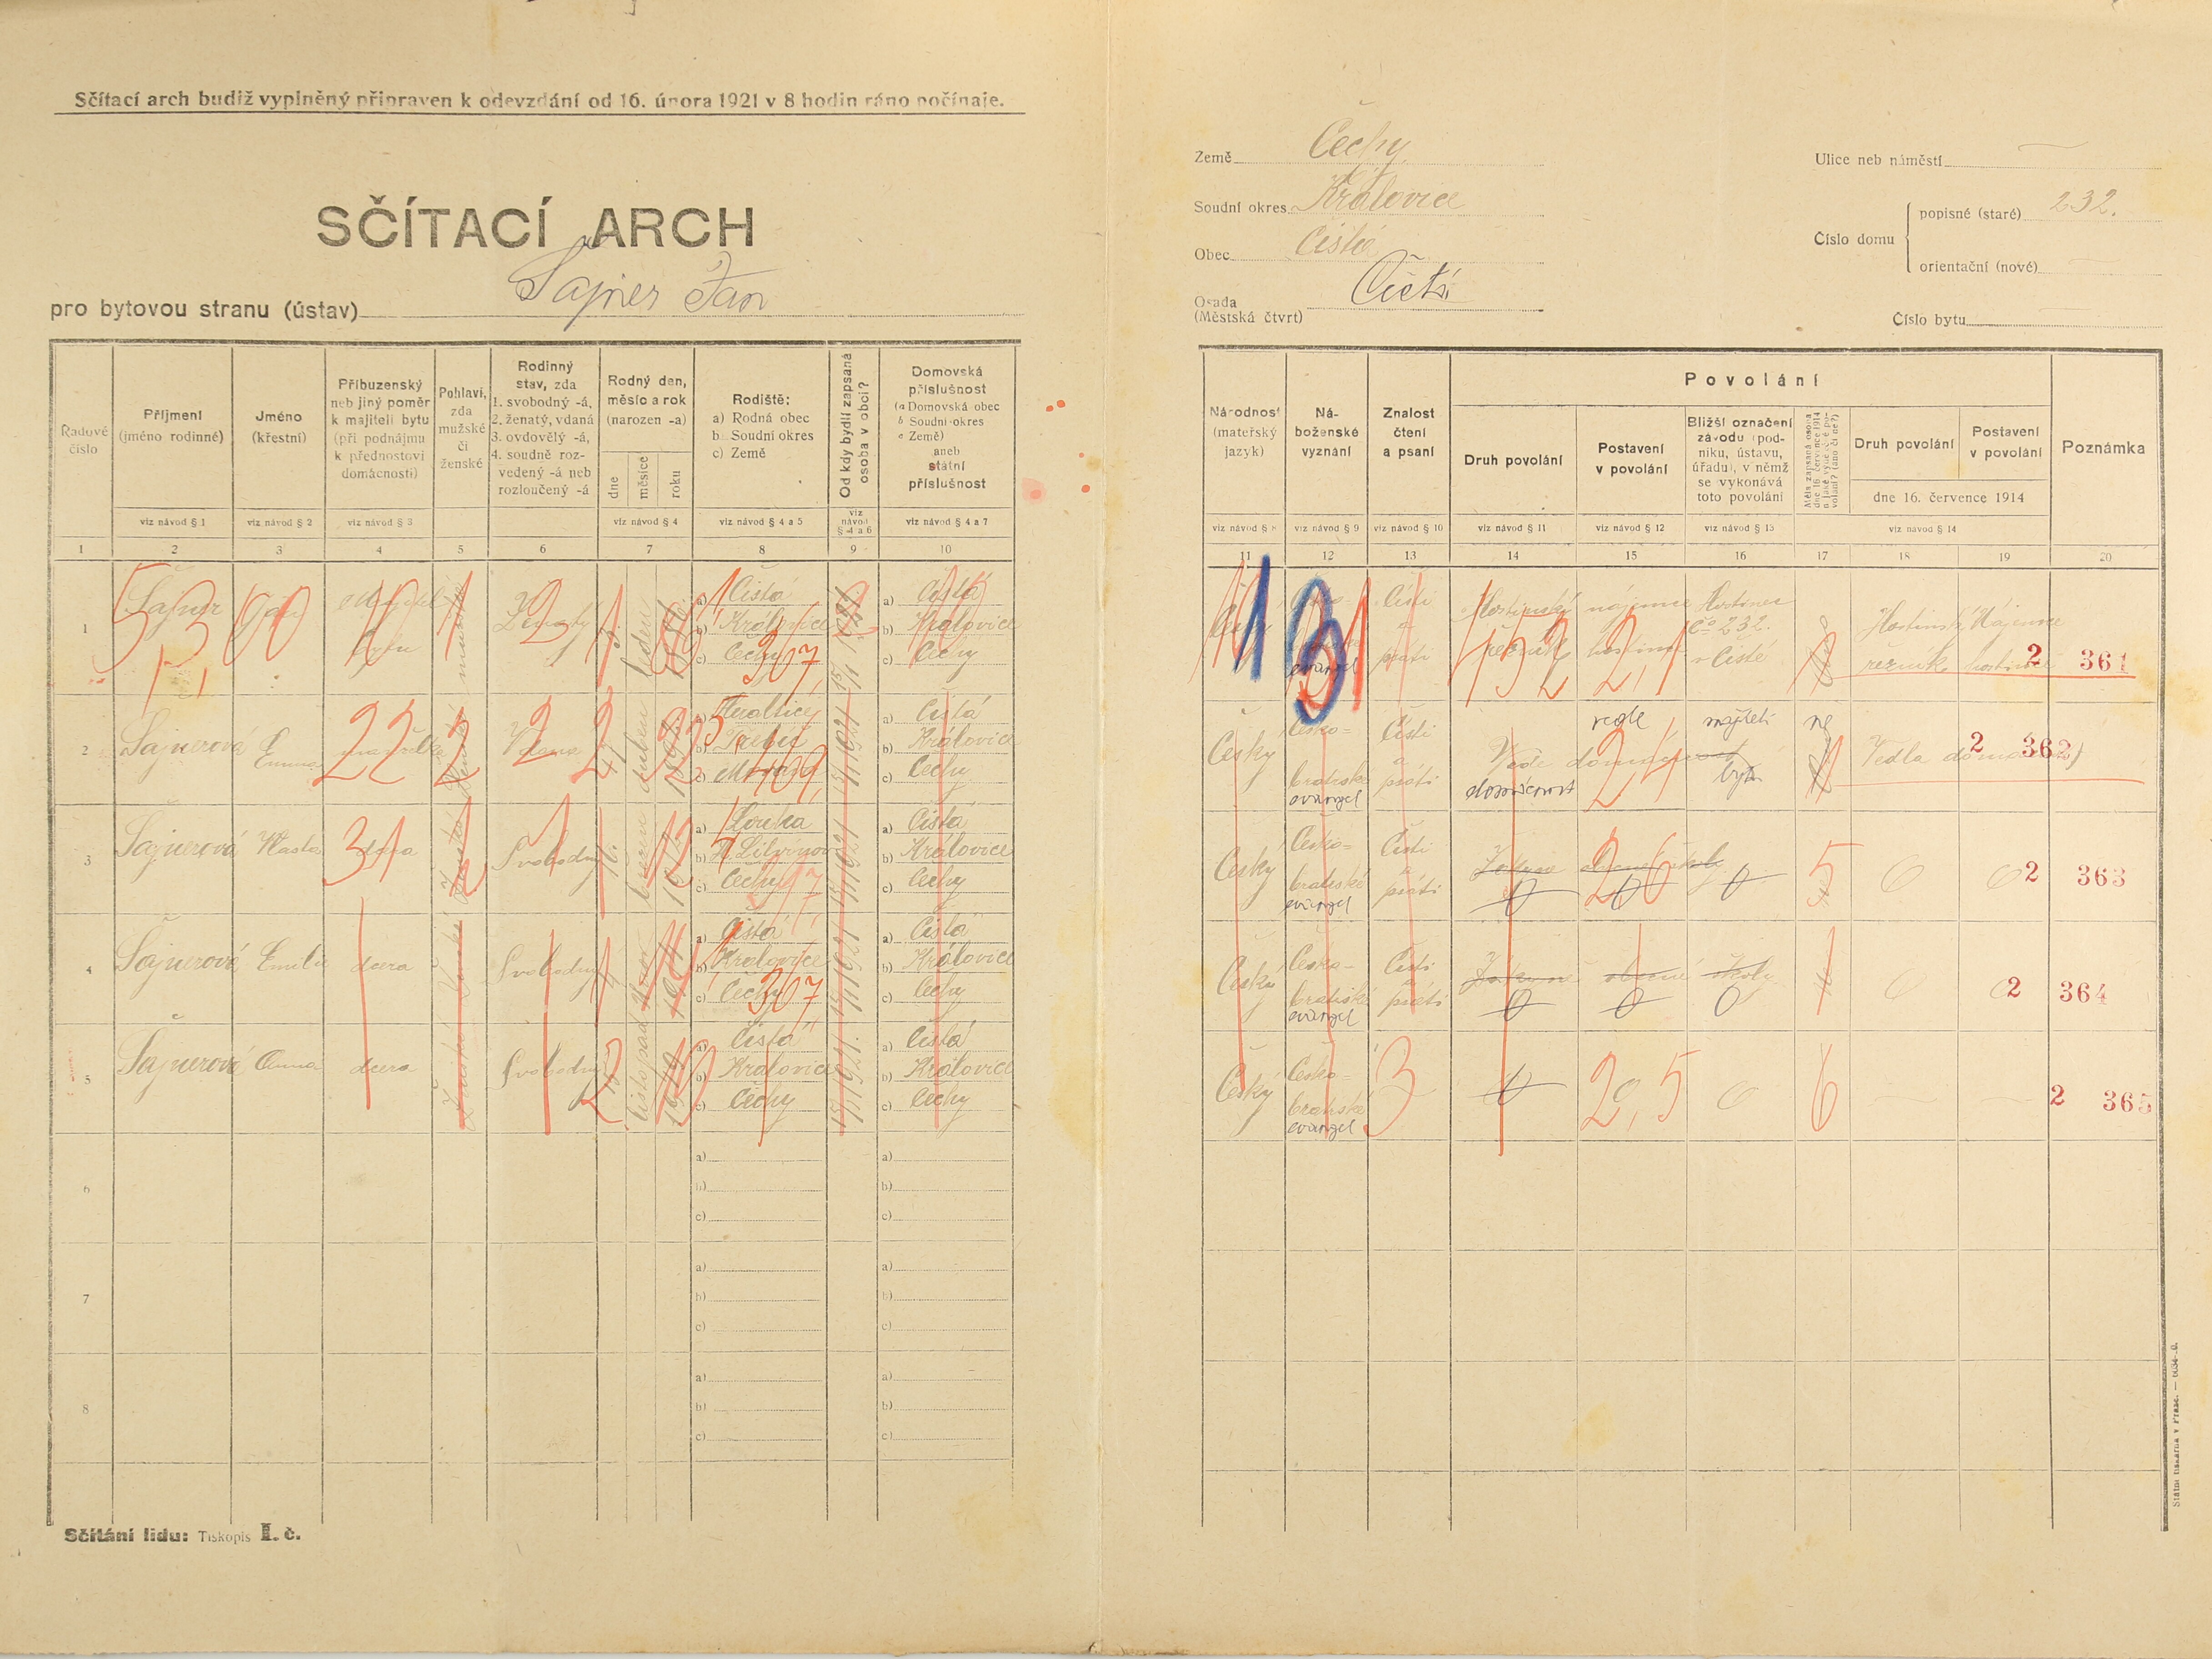 Sčítací arch budiž vyplněný připraven k odevzdání od 16. února 1921 v 8 hodin ráno počínaje.
SČÍTACÍ ARCH
pro bytovou stranu (ústav) Šajner Jan
Země Čechy
Soudní okres Královice
Obec Čistá
Osada Čistá
(Městská čtvrt)
Ulice neb náměstí
Číslo domu
popisné (staré) 232.
orientační (nové)
Číslo bytu
Řadové číslo
Příjmení (jméno rodinné)
Jméno (křestní)
Příbuzenský neb jiný poměr k majiteli bytu (při podnájmu k přednostovi domácnosti)
Pohlaví, zda mužské či ženské
Rodinný stav, zda 1. svobodný -á, 2. ženatý, vdaná 3. ovdovělý -á, 4. soudně rozvedený -á neb rozloučený -á
Rodný den, měsíc a rok (narozen -a)
dne měsíce roku
Rodiště:
a) Rodná obec
b) Soudní okres
c) Země
Od kdy bydlí zapsaná osoba v obci?
Domovská příslušnost
(a Domovská obec
b Soudní okres
c Země)
aneb státní příslušnost
viz návod § 1 viz návod § 2 viz návod § 3 viz návod § 4 viz návod § 4 a 5 viz návod § 4 a 6 viz návod § 4 a 7
1 2 3 4 5 6 7 8 9 10
Národnost (mateřský jazyk)
Náboženské vyznání
Znalost čtení a psaní
Povolání
Druh povolání
Postavení v povolání
Bližší označení závodu (podniku, ústavu, úřadu), v němž se vykonává toto povolání
Druh povolání
Postavení v povolání
dne 16. července 1914
Poznámka
viz návod § 8 viz návod § 9 viz návod § 10 viz návod § 11 viz návod § 12 viz návod § 13 viz návod § 14
11 12 13 14 15 16 17 18 19 20
1 Šajner Jan bytu Ženatý 1. leden
a) Čistá
b) Královice
c) Čechy 307
a) Čistá
b) Královice
c) Čechy
evangel
Čísti a psáti
Hostinský řezník
nájemce hostince
Hostinec
čo 232.
v Čisté
Hostinský řezník
Nájemce
2 361
2 Šajnerová Emma manželka Vdana duben
b) Třebíč
c) Morava
a) Čistá
b) Královice
c) Čechy
Český
Česko-
bratrské
evangel
Čísti a psáti
Vede domácnost
domácnost
vede
majiteli
bytu
ne
Vedla domácnost
2 362
3 Šajnerová Vlasta dcera Svobodný
a) Louka
b) H. Litvínov
c) Čechy
a) Čistá
b) Královice
c) Čechy
Český
Česko-
bratrské
evangel
Čísti a psáti
0 0 0
2 6
5
0 0
2 363
4 Šajnerová Emilie dcera Svobodný
a) Čistá
b) Královice
c) Čechy 307
a) Čistá
b) Královice
c) Čechy
Český
Česko-
bratrské
evangel
Čísti a psáti
obecné školy
0 0 0
0 0
2 364
5 Šajnerová Anna dcera Svobodný listopad
a) Čistá
b) Královice
c) Čechy
a) Čistá
b) Královice
c) Čechy
Český
Česko-
bratrské
evangel
3
0
2,5
0
6
2 365
6
a)
b)
c)
a)
b)
c)
7
a)
b)
c)
a)
b)
c)
8
a)
b)
c)
a)
b)
c)
Sčítání lidu: Tiskopis I. č.